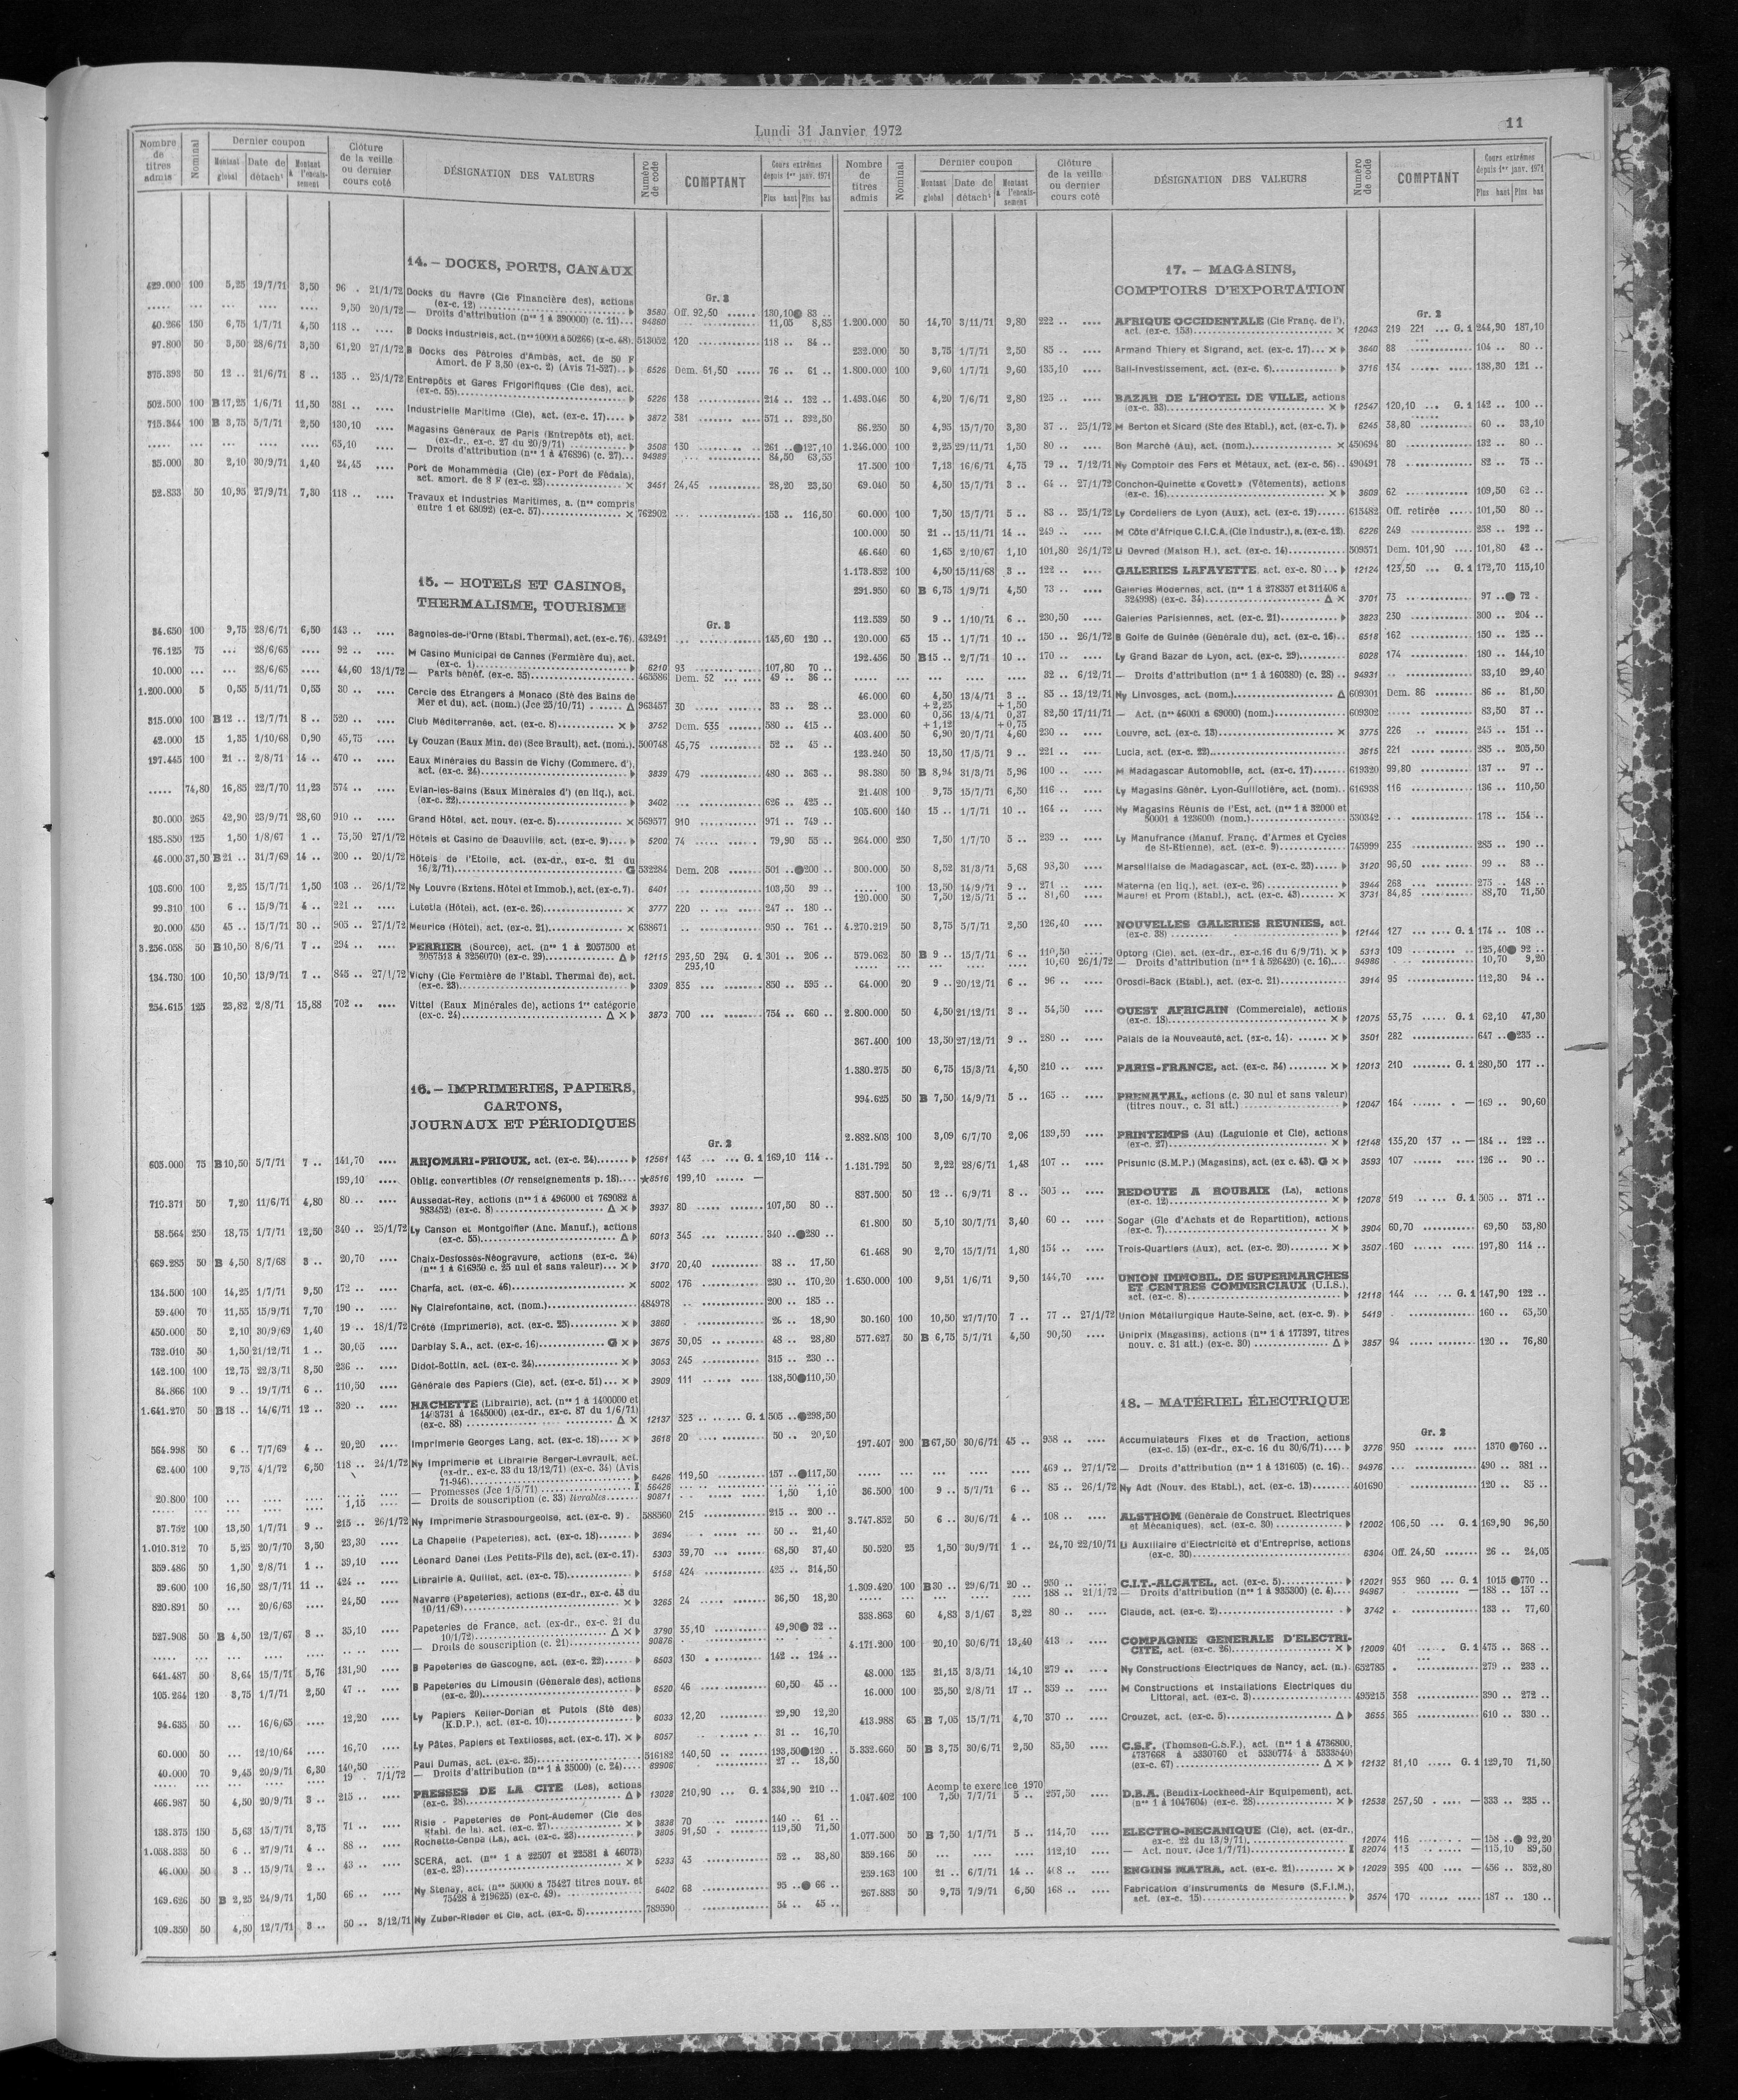 Lundi 31 Janvier 1972
11
Nombre de titres admis
Nominal
Dernier coupon
Montant global
Date de détach^t
Montant à l'encaissement
Clôture de la veille ou dernier cours coté
DÉSIGNATION DES VALEURS
Numéro de code
COMPTANT
Cours extrêmes depuis 1er janv. 1971
Plus haut Plus bas
14. – DOCKS, PORTS, CANAUX
Gr. 3
429.000 100 5,25 19/7/71 3,50 96 . 21/1/72 Docks du Havre (Cie Financière des), actions (ex-c. 12) 3580 Off. 92,50 130,10 83 ..
9,50 20/1/72 — Droits d'attribution (nos 1 à 390000) (c. 11) 94860 11,05 8,85
40.266 150 6,75 1/7/71 4,50 118 .. B Docks Industriels, act. (nos 10001 à 50266) (x-c. 48). 513052 120 118 .. 84 ..
97.800 50 3,50 28/6/71 3,50 61,20 27/1/72 B Docks des Pétroles d'Ambès, act. de 50 F Amort. de F 3,50 (ex-c. 2) (Avis 71-527) 6526 Dem. 61,50 76 .. 61 ..
375.393 50 12 .. 21/6/71 8 .. 135 .. 25/1/72 Entrepôts et Gares Frigorifiques (Cie des), act. (ex-c. 55) 5226 138 214 .. 132 ..
502.500 100 B 17,25 1/6/71 11,50 381 .. Industrielle Maritime (Cie), act. (ex-c. 17) 3872 381 571 .. 392,50
715.344 100 B 3,75 5/7/71 2,50 130,10 Magasins Généraux de Paris (Entrepôts et), act. (ex-dr., ex-c. 27 du 20/9/71) 3508 130 261 .. 127,10
65,10 — Droits d'attribution (nos 1 à 476896) (c. 27) 94989 84,50 63,55
35.000 30 2,10 30/9/71 1,40 24,45 Port de Monammedia (Cie) (ex-Port de Fédala), act. amort. de 8 F (ex-c. 23) × 3451 24,45 28,20 23,50
52.833 50 10,95 27/9/71 7,30 118 .. Travaux et Industries Maritimes, a. (nos compris entre 1 et 68092) (ex-c. 57) × 762902 153 .. 116,50
15. – HOTELS ET CASINOS, THERMALISME, TOURISME
Gr. 3
34.650 100 9,75 28/6/71 6,50 143 .. Bagnoles-de-l'Orne (Etabl. Thermal), act. (ex-c. 76). 432491 145,60 120 ..
76.125 75 ... 28/6/65 92 .. M Casino Municipal de Cannes (Fermière du), act. (ex-c. 1) 6210 93 107,80 70 ..
10.000 28/6/65 44,60 13/1/72 — Parts bénéf. (ex-c. 35) 465586 Dem. 52 49 .. 36 ..
1.200.000 5 0,55 5/11/71 0,55 30 .. Cercle des Etrangers à Monaco (Sté des Bains de Mer et du), act. (nom.) (Jce 25/10/71) Δ 963457 30 33 .. 28 ..
315.000 100 B 12 .. 12/7/71 8 .. 520 .. Club Méditerranée, act. (ex-c. 8) × 3752 Dem. 535 580 .. 415 ..
42.000 15 1,35 1/10/68 0,90 45,75 Ly Couzan (Eaux Min. de) (Sce Brault), act. (nom.). 500748 45,75 52 .. 45 ..
197.445 100 21 .. 2/8/71 14 .. 470 .. Eaux Minérales du Bassin de Vichy (Commerc. d'), act. (ex-c. 24) 3839 479 480 .. 363 ..
74,80 16,85 22/7/70 11,23 574 .. Evian-les-Bains (Eaux Minérales d') (en liq.), act. (ex-c. 22) 3402 626 .. 425 ..
30.000 265 42,90 23/9/71 28,60 910 .. Grand Hôtel, act. nouv. (ex-c. 5) × 569577 910 971 .. 749 ..
185.850 125 1,50 1/8/67 1 .. 75,50 27/1/72 Hôtels et Casino de Deauville, act. (ex-c. 9) 5200 74 79,90 55 ..
46.000 37,50 B 21 .. 31/7/69 14 .. 200 .. 20/1/72 Hôtels de l'Etoile, act. (ex-dr., ex-c. 21 du 16/2/71) G 532284 Dem. 208 501 .. 200 ..
103.600 100 2,25 15/7/71 1,50 103 .. 26/1/72 Ny Louvre (Extens. Hôtel et Immob.), act. (ex-c. 7). 6401 103,50 99 ..
99.310 100 6 .. 15/9/71 4 .. 221 .. Lutetia (Hôtel), act. (ex-c. 26) × 3777 220 247 .. 180 ..
20.000 450 45 .. 15/7/71 30 .. 905 .. 27/1/72 Meurice (Hôtel), act. (ex-c. 21) × 638671 950 .. 761 ..
3.256.058 50 B 10,50 8/6/71 7 .. 294 .. PERRIER (Source), act. (nos 1 à 2057500 et 2057513 à 3256070) (ex-c. 29) Δ 12115 293,50 294 G. 1 301 .. 206 ..
293,10
134.730 100 10,50 13/9/71 7 .. 845 .. 27/1/72 Vichy (Cie Fermière de l'Etabl. Thermal de), act. (ex-c. 23) 3309 835 850 .. 595 ..
254.615 125 23,82 2/8/71 15,88 702 .. Vittel (Eaux Minérales de), actions 1re catégorie (ex-c. 24) Δ × 3873 700 754 .. 660 ..
16. – IMPRIMERIES, PAPIERS, CARTONS, JOURNAUX ET PÉRIODIQUES
Gr. 2
605.000 75 B 10,50 5/7/71 7 .. 141,70 ARJOMARI-PRIOUX, act. (ex-c. 24) 12561 143 G. 1 169,10 114 ..
199,10 Oblig. convertibles (Cf renseignements p. 18) ★8516 199,10 —
719.371 50 7,20 11/6/71 4,80 80 .. Aussedat-Rey, actions (nos 1 à 496000 et 769082 à 983452) (ex-c. 8) Δ × 3937 80 107,50 80 ..
58.564 250 18,75 1/7/71 12,50 340 .. 25/1/72 Ly Canson et Montgolfier (Anc. Manuf.), actions (ex-c. 55) Δ 6013 345 340 .. 280 ..
669.285 50 B 4,50 8/7/68 3 .. 20,70 Chaix-Desfossés-Néogravure, actions (ex-c. 24) (nos 1 à 616950 c. 25 nul et sans valeur) × 3170 20,40 38 .. 17,50
134.500 100 14,25 1/7/71 9,50 172 .. Charfa, act. (ex-c. 46) × 5002 176 230 .. 170,20
59.400 70 11,55 15/9/71 7,70 190 .. Ny Clairefontaine, act. (nom.) 484978 200 .. 185 ..
450.000 50 2,10 30/9/69 1,40 19 .. 18/1/72 Crété (Imprimerie), act. (ex-c. 25) × 3860 26 .. 18,90
732.010 50 1,50 21/12/71 1 .. 30,05 Darblay S.A., act. (ex-c. 16) G × 3675 30,05 48 .. 28,80
142.100 100 12,75 22/3/71 8,50 236 .. Didot-Bottin, act. (ex-c. 24) × 3053 245 315 .. 230 ..
84.866 100 9 .. 19/7/71 6 .. 110,50 Générale des Papiers (Cie), act. (ex-c. 51) × 3909 111 138,50 110,50
1.641.270 50 B 18 .. 14/6/71 12 .. 320 .. HACHETTE (Librairie), act. (nos 1 à 1400000 et 1403731 à 1645000) (ex-dr., ex-c. 87 du 1/6/71) (ex-c. 88) Δ × 12137 323 G. 1 505 .. 298,50
564.998 50 6 .. 7/7/69 4 .. 20,20 Imprimerie Georges Lang, act. (ex-c. 18) × 3618 20 50 .. 20,20
62.400 100 9,75 4/1/72 6,50 118 .. 24/1/72 Ny Imprimerie et Librairie Berger-Levrault, act. (ex-dr., ex-c. 33 du 13/12/71) (ex-c. 34) (Avis 71-946) 6426 119,50 157 .. 117,50
20.800 100 — Promesses (Jce 1/5/71) I 56426
1,15 — Droits de souscription (c. 33) livrables 90871 1,50 1,10
37.752 100 13,50 1/7/71 9 .. 215 .. 26/1/72 Ny Imprimerie Strasbourgeoise, act. (ex-c. 9) 588560 215 215 .. 200 ..
1.010.312 70 5,25 20/7/70 3,50 23,30 La Chapelle (Papeteries), act. (ex-c. 18) 3694 50 .. 21,40
359.486 50 1,50 2/8/71 1 .. 39,10 Léonard Danel (Les Petits-Fils de), act. (ex-c. 17). 5303 39,70 68,50 37,40
39.600 100 16,50 28/7/71 11 .. 424 .. Librairie A. Quillet, act. (ex-c. 75) 5158 424 425 .. 314,50
820.891 50 ... 20/6/63 24,50 Navarre (Papeteries), actions (ex-dr., ex-c. 43 du 10/11/69) × 3265 24 36,50 18,20
527.908 50 B 4,50 12/7/67 3 .. 35,10 Papeteries de France, act. (ex-dr., ex-c. 21 du 10/1/72) Δ × 3790 35,10 49,90 32 ..
— Droits de souscription (c. 21) 90876
641.487 50 8,64 15/7/71 5,76 131,90 B Papeteries de Gascogne, act. (ex-c. 22) 6503 130 142 .. 124 ..
105.264 120 3,75 1/7/71 2,50 47 .. B Papeteries du Limousin (Générale des), actions (ex-c. 20) 6520 46 60,50 45 ..
94.635 50 ... 16/6/65 12,20 Ly Papiers Keller-Dorian et Putois (Sté des) (K.D.P.), act. (ex-c. 10) 6033 12,20 29,90 12,20
60.000 50 ... 12/10/64 16,70 Ly Pâtes, Papiers et Textiloses, act. (ex-c. 17). × 6057 31 .. 16,70
40.000 70 9,45 20/9/71 6,30 140,50 Paul Dumas, act. (ex-c. 25) 516182 140,50 193,50 120 ..
19 .. 7/1/72 — Droits d'attribution (nos 1 à 35000) (c. 24) 89906 27 .. 18,50
466.987 50 4,50 20/9/71 3 .. 215 .. PRESSES DE LA CITE (Les), actions (ex-c. 28) Δ 13028 210,90 G. 1 334,90 210 ..
138.375 150 5,63 15/7/71 3,75 71 .. Risle - Papeteries de Pont-Audemer (Cie des Etabl. de la), act. (ex-c. 27) × 3838 70 140 .. 61 ..
1.058.333 50 6 .. 27/9/71 4 .. 88 .. Rochette-Cenpa (La), act. (ex-c. 23) 3805 91,50 119,50 71,50
46.000 50 3 .. 15/9/71 2 .. 43 .. SCERA, act. (nos 1 à 22507 et 22581 à 46073) (ex-c. 23) × 5233 43 52 .. 38,80
169.626 50 B 2,25 24/9/71 1,50 66 .. Ny Stenay, act. (nos 50000 à 75427 titres nouv. et 75428 à 219625) (ex-c. 49) 6402 68 95 .. 66 ..
109.350 50 4,50 12/7/71 3 .. 50 .. 3/12/71 Ny Zuber-Rieder et Cie, act. (ex-c. 5) 789590 54 .. 45 ..
Nombre de titres admis
Nominal
Dernier coupon
Montant global
Date de détach^t
Montant à l'encaissement
Clôture de la veille ou dernier cours coté
DÉSIGNATION DES VALEURS
Numéro de code
COMPTANT
Cours extrêmes depuis 1er janv. 1971
Plus haut Plus bas
17. – MAGASINS, COMPTOIRS D'EXPORTATION
Gr. 2
1.200.000 50 14,70 3/11/71 9,80 222 .. AFRIQUE OCCIDENTALE (Cie Franç. de l'), act. (ex-c. 153) × 12043 219 221 G. 1 244,90 187,10
232.000 50 3,75 1/7/71 2,50 85 .. Armand Thiery et Sigrand, act. (ex-c. 17) × 3640 88 104 .. 80 ..
1.800.000 100 9,60 1/7/71 9,60 135,10 Bail-Investissement, act. (ex-c. 6) 3716 134 138,30 121 ..
1.493.046 50 4,20 7/6/71 2,80 125 .. BAZAR DE L'HOTEL DE VILLE, actions (ex-c. 33) × 12547 120,10 G. 1 142 .. 100 ..
86.250 50 4,95 15/7/70 3,30 37 .. 25/1/72 M Berton et Sicard (Sté des Etabl.), act. (ex-c. 7). 6245 38,80 60 .. 33,10
1.246.000 100 2,25 29/11/71 1,50 80 .. Bon Marché (Au), act. (nom.) × 450694 80 132 .. 80 ..
17.500 100 7,13 16/6/71 4,75 79 .. 7/12/71 Ny Comptoir des Fers et Métaux, act. (ex-c. 56) 490491 78 82 .. 75 ..
69.040 50 4,50 15/7/71 3 .. 64 .. 27/1/72 Conchon-Quinette «Covett» (Vêtements), actions (ex-c. 16) × 3609 62 109,50 62 ..
60.000 100 7,50 15/7/71 5 .. 83 .. 25/1/72 Ly Cordeliers de Lyon (Aux), act. (ex-c. 19) 615482 Off. retirée 101,50 80 ..
100.000 50 21 .. 15/11/71 14 .. 249 .. M Côte d'Afrique C.I.C.A. (Cie Industr.), a. (ex-c. 12). 6226 249 258 .. 192 ..
46.640 60 1,65 2/10/67 1,10 101,80 26/1/72 Li Devred (Maison H.), act. (ex-c. 14) 509571 Dem. 101,90 101,80 42 ..
1.173.852 100 4,50 15/11/68 3 .. 122 .. GALERIES LAFAYETTE, act. ex-c. 80 12124 123,50 G. 1 172,70 115,10
291.950 60 B 6,75 1/9/71 4,50 73 .. Galeries Modernes, act. (nos 1 à 278357 et 311406 à 324998) (ex-c. 34) Δ × 3701 73 97 .. 72 .
112.539 50 9 .. 1/10/71 6 .. 230,50 Galeries Parisiennes, act. (ex-c. 21) 3823 230 300 .. 204 ..
120.000 65 15 .. 1/7/71 10 .. 150 .. 26/1/72 B Golfe de Guinée (Générale du), act. (ex-c. 16) 6518 162 150 .. 125 ..
192.456 50 B 15 .. 2/7/71 10 .. 170 .. Ly Grand Bazar de Lyon, act. (ex-c. 29) 6028 174 180 .. 144,10
32 .. 6/12/71 — Droits d'attribution (nos 1 à 160380) (c. 28) 94931 33,10 29,40
46.000 60 4,50 13/4/71 3 .. 85 .. 13/12/71 Ny Linvosges, act. (nom.) Δ 609301 Dem. 86 86 .. 81,50
+ 2,25 + 1,50
23.000 60 0,56 13/4/71 0,37 82,50 17/11/71 — Act. (nos 46001 à 69000) (nom.) 609302 83,50 37 ..
+ 1,12 + 0,75
403.400 50 6,90 20/7/71 4,60 230 .. Louvre, act. (ex-c. 13) × 3775 226 245 .. 151 ..
123.240 50 13,50 17/5/71 9 .. 221 .. Lucia, act. (ex-c. 22) 3615 221 285 .. 205,50
98.380 50 B 8,94 31/3/71 5,96 100 .. M Madagascar Automobile, act. (ex-c. 17) 619320 99,80 137 .. 97 ..
21.408 100 9,75 15/7/71 6,50 116 .. Ly Magasins Génér. Lyon-Guillotière, act. (nom). 616938 116 136 .. 110,50
105.600 140 15 .. 1/7/71 10 .. 164 .. Ny Magasins Réunis de l'Est, act. (nos 1 à 32000 et 50001 à 123600) (nom.) 530342 178 .. 154 ..
264.000 250 7,50 1/7/70 5 .. 239 .. Ly Manufrance (Manuf. Franç. d'Armes et Cycles de St-Etienne), act. (ex-c. 9) 745999 235 285 .. 190 ..
300.000 50 8,52 31/3/71 5,68 98,30 Marseillaise de Madagascar, act. (ex-c. 23) 3120 96,50 99 .. 83 ..
100 13,50 14/9/71 9 .. 271 .. Materna (en liq.), act. (ex-c. 26) 3944 268 275 .. 148 ..
120.000 50 7,50 12/5/71 5 .. 81,60 Maurel et Prom (Etabl.), act. (ex-c. 43) × 3731 84,85 88,70 71,50
4.270.219 50 3,75 5/7/71 2,50 126,40 NOUVELLES GALERIES REUNIES, act. (ex-c. 38) 12144 127 G. 1 174 .. 108 ..
579.062 50 B 9 .. 15/7/71 6 .. 110,50 Optorg (Cie), act. (ex-dr., ex-c. 16 du 6/9/71). × 5313 109 125,40 92 ..
10,60 26/1/72 — Droits d'attribution (nos 1 à 526420) (c. 16) 94986 10,70 9,20
64.000 20 9 .. 20/12/71 6 .. 96 .. Orosdi-Back (Etabl.), act. (ex-c. 21) 3914 95 112,30 94 ..
2.800.000 50 4,50 21/12/71 3 .. 54,50 OUEST AFRICAIN (Commerciale), actions (ex-c. 18) × 12075 53,75 G. 1 62,10 47,30
367.400 100 13,50 27/12/71 9 .. 280 .. Palais de la Nouveauté, act. (ex-c. 14) × 3501 282 647 .. 235 ..
1.380.275 50 6,75 15/3/71 4,50 210 .. PARIS-FRANCE, act. (ex-c. 34) × 12013 210 G. 1 280,50 177 ..
994.625 50 B 7,50 14/9/71 5 .. 165 .. PRENATAL, actions (c. 30 nul et sans valeur) (titres nouv., c. 31 att.) 12047 164 — 169 .. 90,60
2.882.803 100 3,09 6/7/70 2,06 139,50 PRINTEMPS (Au) (Laguionie et Cie), actions (ex-c. 27) × 12148 135,20 137 — 184 .. 122 ..
1.131.792 50 2,22 28/6/71 1,48 107 .. Prisunic (S.M.P.) (Magasins), act. (ex c. 43). G × 3593 107 126 .. 90 ..
837.500 50 12 .. 6/9/71 8 .. 503 .. REDOUTE A ROUBAIX (La), actions (ex-c. 12) × 12078 519 G. 1 505 .. 371 ..
61.800 50 5,10 30/7/71 3,40 60 .. Sogar (Gle d'Achats et de Repartition), actions (ex-c. 7) × 3904 60,70 69,50 53,80
61.468 90 2,70 15/7/71 1,80 154 .. Trois-Quartiers (Aux), act. (ex-c. 20) × 3507 160 197,80 114 ..
1.650.000 100 9,51 1/6/71 9,50 144,70 UNION IMMOBIL. DE SUPERMARCHES ET CENTRES COMMERCIAUX (U.I.S.), act. (ex-c. 8) 12118 144 G. 1 147,90 122 ..
30.160 100 10,50 27/7/70 7 .. 77 .. 27/1/72 Union Métallurgique Haute-Seine, act. (ex-c. 9). 5419 160 .. 65,50
577.627 50 B 6,75 5/7/71 4,50 90,50 Uniprix (Magasins), actions (nos 1 à 177397, titres nouv. c. 31 att.) (ex-c. 30) Δ 3857 94 120 .. 76,80
18. – MATÉRIEL ÉLECTRIQUE
Gr. 2
197.407 200 B 67,50 30/6/71 45 .. 938 .. Accumulateurs Fixes et de Traction, actions (ex-c. 15) (ex-dr., ex-c. 16 du 30/6/71) 3776 950 1370 760 ..
469 .. 27/1/72 — Droits d'attribution (nos 1 à 131605) (c. 16) 94976 490 .. 381 ..
36.500 100 9 .. 5/7/71 6 .. 85 .. 26/1/72 Ny Adt (Nouv. des Etabl.), act. (ex-c. 13) 401690 120 .. 85 ..
3.747.852 50 6 .. 30/6/71 4 .. 108 .. ALSTHOM (Générale de Construct. Electriques et Mécaniques), act. (ex-c. 30) 12002 106,50 G. 1 169,90 96,50
50.520 25 1,50 30/9/71 1 .. 24,70 22/10/71 Li Auxiliaire d'Electricité et d'Entreprise, actions (ex-c. 30) 6304 Off. 24,50 26 .. 24,05
1.309.420 100 B 30 .. 29/6/71 20 .. 950 .. C.I.T.-ALCATEL, act. (ex-c. 5) 12021 953 960 G. 1 1015 770 ..
188 .. 21/1/72 — Droits d'attribution (nos 1 à 935300) (c. 4) 94967 — 188 .. 157 ..
338.863 60 4,83 3/1/67 3,22 80 .. Claude, act. (ex-c. 2) 3742 133 .. 77,60
4.171.200 100 20,10 30/6/71 13,40 413 .. COMPAGNIE GENERALE D'ELECTRICITE, act. (ex-c. 26) × 12009 401 G. 1 475 .. 368 ..
48.000 125 21,15 3/3/71 14,10 279 .. Ny Constructions Electriques de Nancy, act. (n.) 652785 279 .. 233 ..
16.000 100 25,50 2/8/71 17 .. 359 .. M Constructions et Installations Electriques du Littoral, act. (ex-c. 3) 495215 358 390 .. 272 ..
413.988 65 B 7,05 15/7/71 4,70 370 .. Crouzet, act. (ex-c. 5) Δ 3655 365 610 .. 330 ..
5.332.660 50 B 3,75 30/6/71 2,50 83,50 C.S.F. (Thomson-C.S.F.), act. (nos 1 à 4736800, 4737668 à 5330760 et 5330774 à 5333540) (ex-c. 67) Δ × 12132 81,10 G. 1 129,70 71,50
Acompte exercice 1970
1.047.402 100 7,50 7/7/71 5 .. 257,50 D.B.A. (Bendix-Lockheed-Air Equipement), act. (nos 1 à 1047604) (ex-c. 28) × 12538 257,50 — 333 .. 235 ..
1.077.500 50 B 7,50 1/7/71 5 .. 114,70 ELECTRO-MECANIQUE (Cie), act. (ex-dr., ex-c. 22 du 13/9/71) 12074 116 — 158 .. 92,20
359.166 50 112,10 — Act. nouv. (Jce 1/7/71) I 82074 — 115,10 89,50
259.163 100 21 .. 6/7/71 14 .. 408 .. ENGINS MATRA, act. (ex-c. 21) × 12029 395 400 — 456 .. 352,80
267.883 50 9,75 7/9/71 6,50 168 .. Fabrication d'Instruments de Mesure (S.F.I.M.), act. (ex-c. 15) 3574 170 187 .. 130 ..